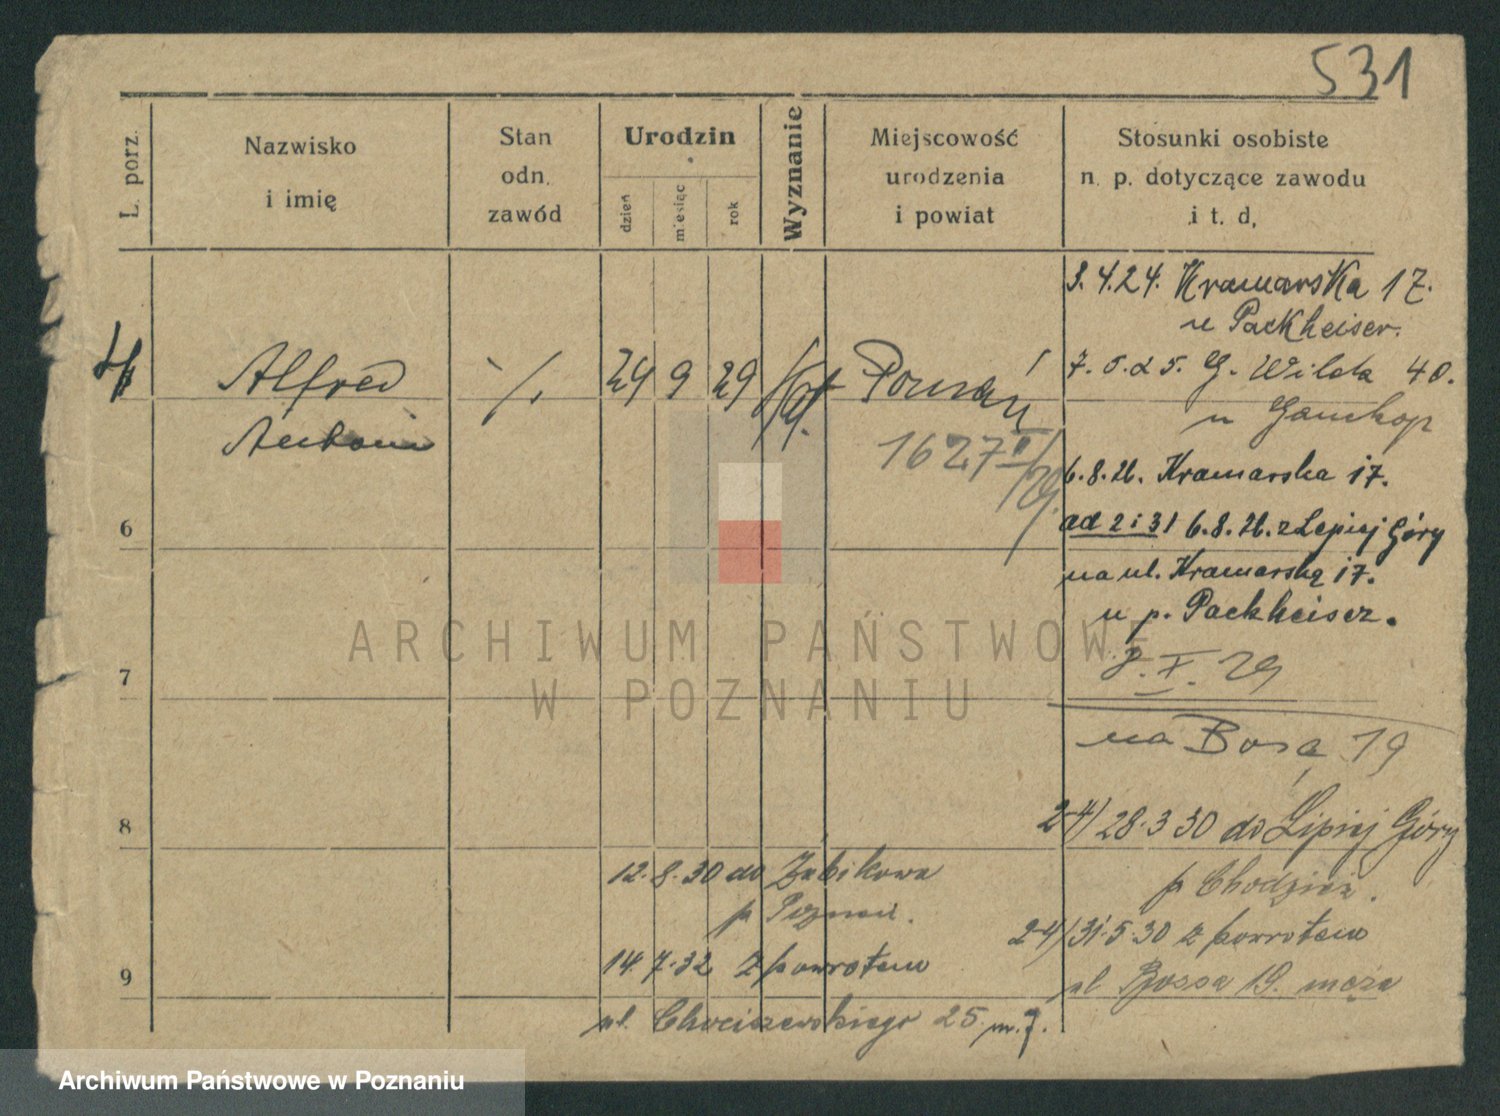 531
L. porz.
Nazwisko
i imię
Stan
odn.
zawód
Urodzin
dzień
miesiąc
rok
Wyznanie
Miejscowość
urodzenia
i powiat
Stosunki osobiste
n. p. dotyczące zawodu
i t. d,
3.4.24. Kramarska 17.
u Packheiser.
4 Alfred ·/. 24 9 29 kat. Poznań
Antoni
1627 II/29.
7.5.25. G. Wilda 40.
u
6.8.26. Kramarska 17.
6
ad 2 i 3/ 6.8.26. z Lepiej Góry
na ul. Kramarską 17.
u p. Packheiser.
7
8.X.29
na Bosą 19
8
2-4/ 28.3 30 do Lipiej Góry
p Chodzież.
12.8.30 do Żabikowa
p Poznań.
2-4/ 31.5.30 z powrotem
ul Bossa 19. męża
9
14.7.32 z powrotem
ul. Chociszewskiego 25 m.7.
ARCHIWUM PAŃSTWOWE
W POZNANIU
Archiwum Państwowe w Poznaniu